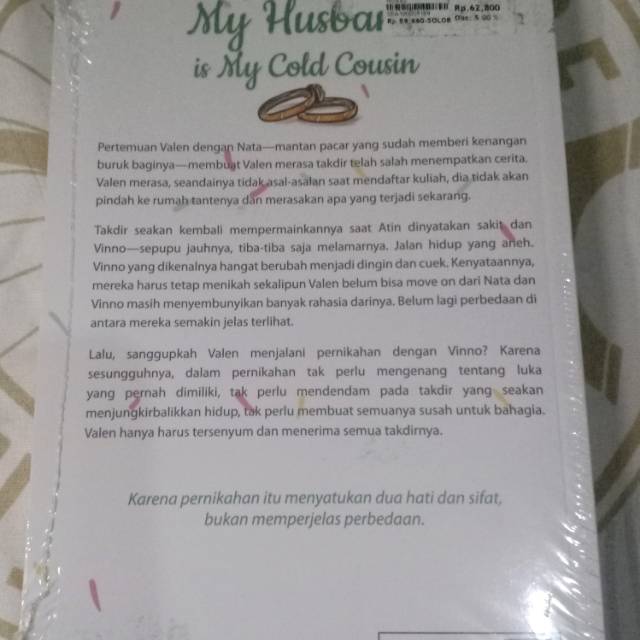 My Husba
Rp.62,800
is My Cold Cousin
Pertemuan Valen dengan Nata—mantan pacar yang sudah memberi kenangan
buruk baginya—membuat Valen merasa takdir telah salah menempatkan cerita.
Valen merasa, seandainya tidak asal-asalan saat mendaftar kuliah, dia tidak akan
pindah ke rumah tantenya dan merasakan apa yang terjadi sekarang.
Takdir seakan kembali mempermainkannya saat Atin dinyatakan sakit dan
Vinno—sepupu jauhnya, tiba-tiba saja melamarnya. Jalan hidup yang aneh.
Vinno yang dikenalnya hangat berubah menjadi dingin dan cuek. Kenyataannya,
mereka harus tetap menikah sekalipun Valen belum bisa move on dari Nata dan
Vinno masih menyembunyikan banyak rahasia darinya. Belum lagi perbedaan di
antara mereka semakin jelas terlihat.
Lalu, sanggupkah Valen menjalani pernikahan dengan Vinno? Karena
sesungguhnya, dalam pernikahan tak perlu mengenang tentang luka
yang pernah dimiliki, tak perlu mendendam pada takdir yang seakan
menjungkirbalikkan hidup, tak perlu membuat semuanya susah untuk bahagia.
Valen hanya harus tersenyum dan menerima semua takdirnya.
Karena pernikahan itu menyatukan dua hati dan sifat,
bukan memperjelas perbedaan.